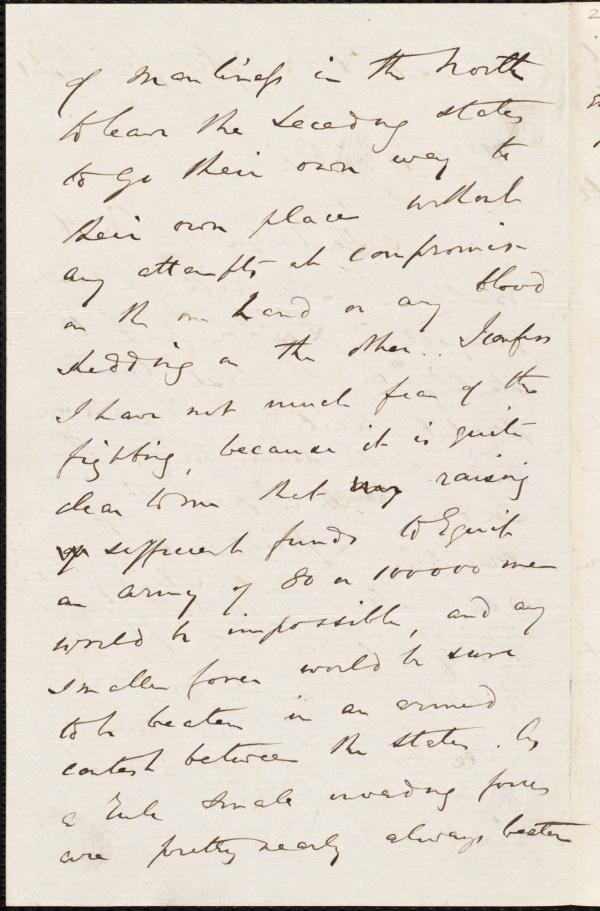 of manliness in the North
to leave the seceding states
to go their own way to
their own place without
any attempts at compromise
on the one hand or any blood
shedding on the other.. I confess
I have not much fear of the
fighting, because it is quite
clear to me that raising
sufficient funds to Equip
an army of 80 or 100000 men
would be impossible, and any
smaller force would be sure
to be beaten in an armed
contest between the states. As
a rule small invading forces
are pretty nearly always beaten